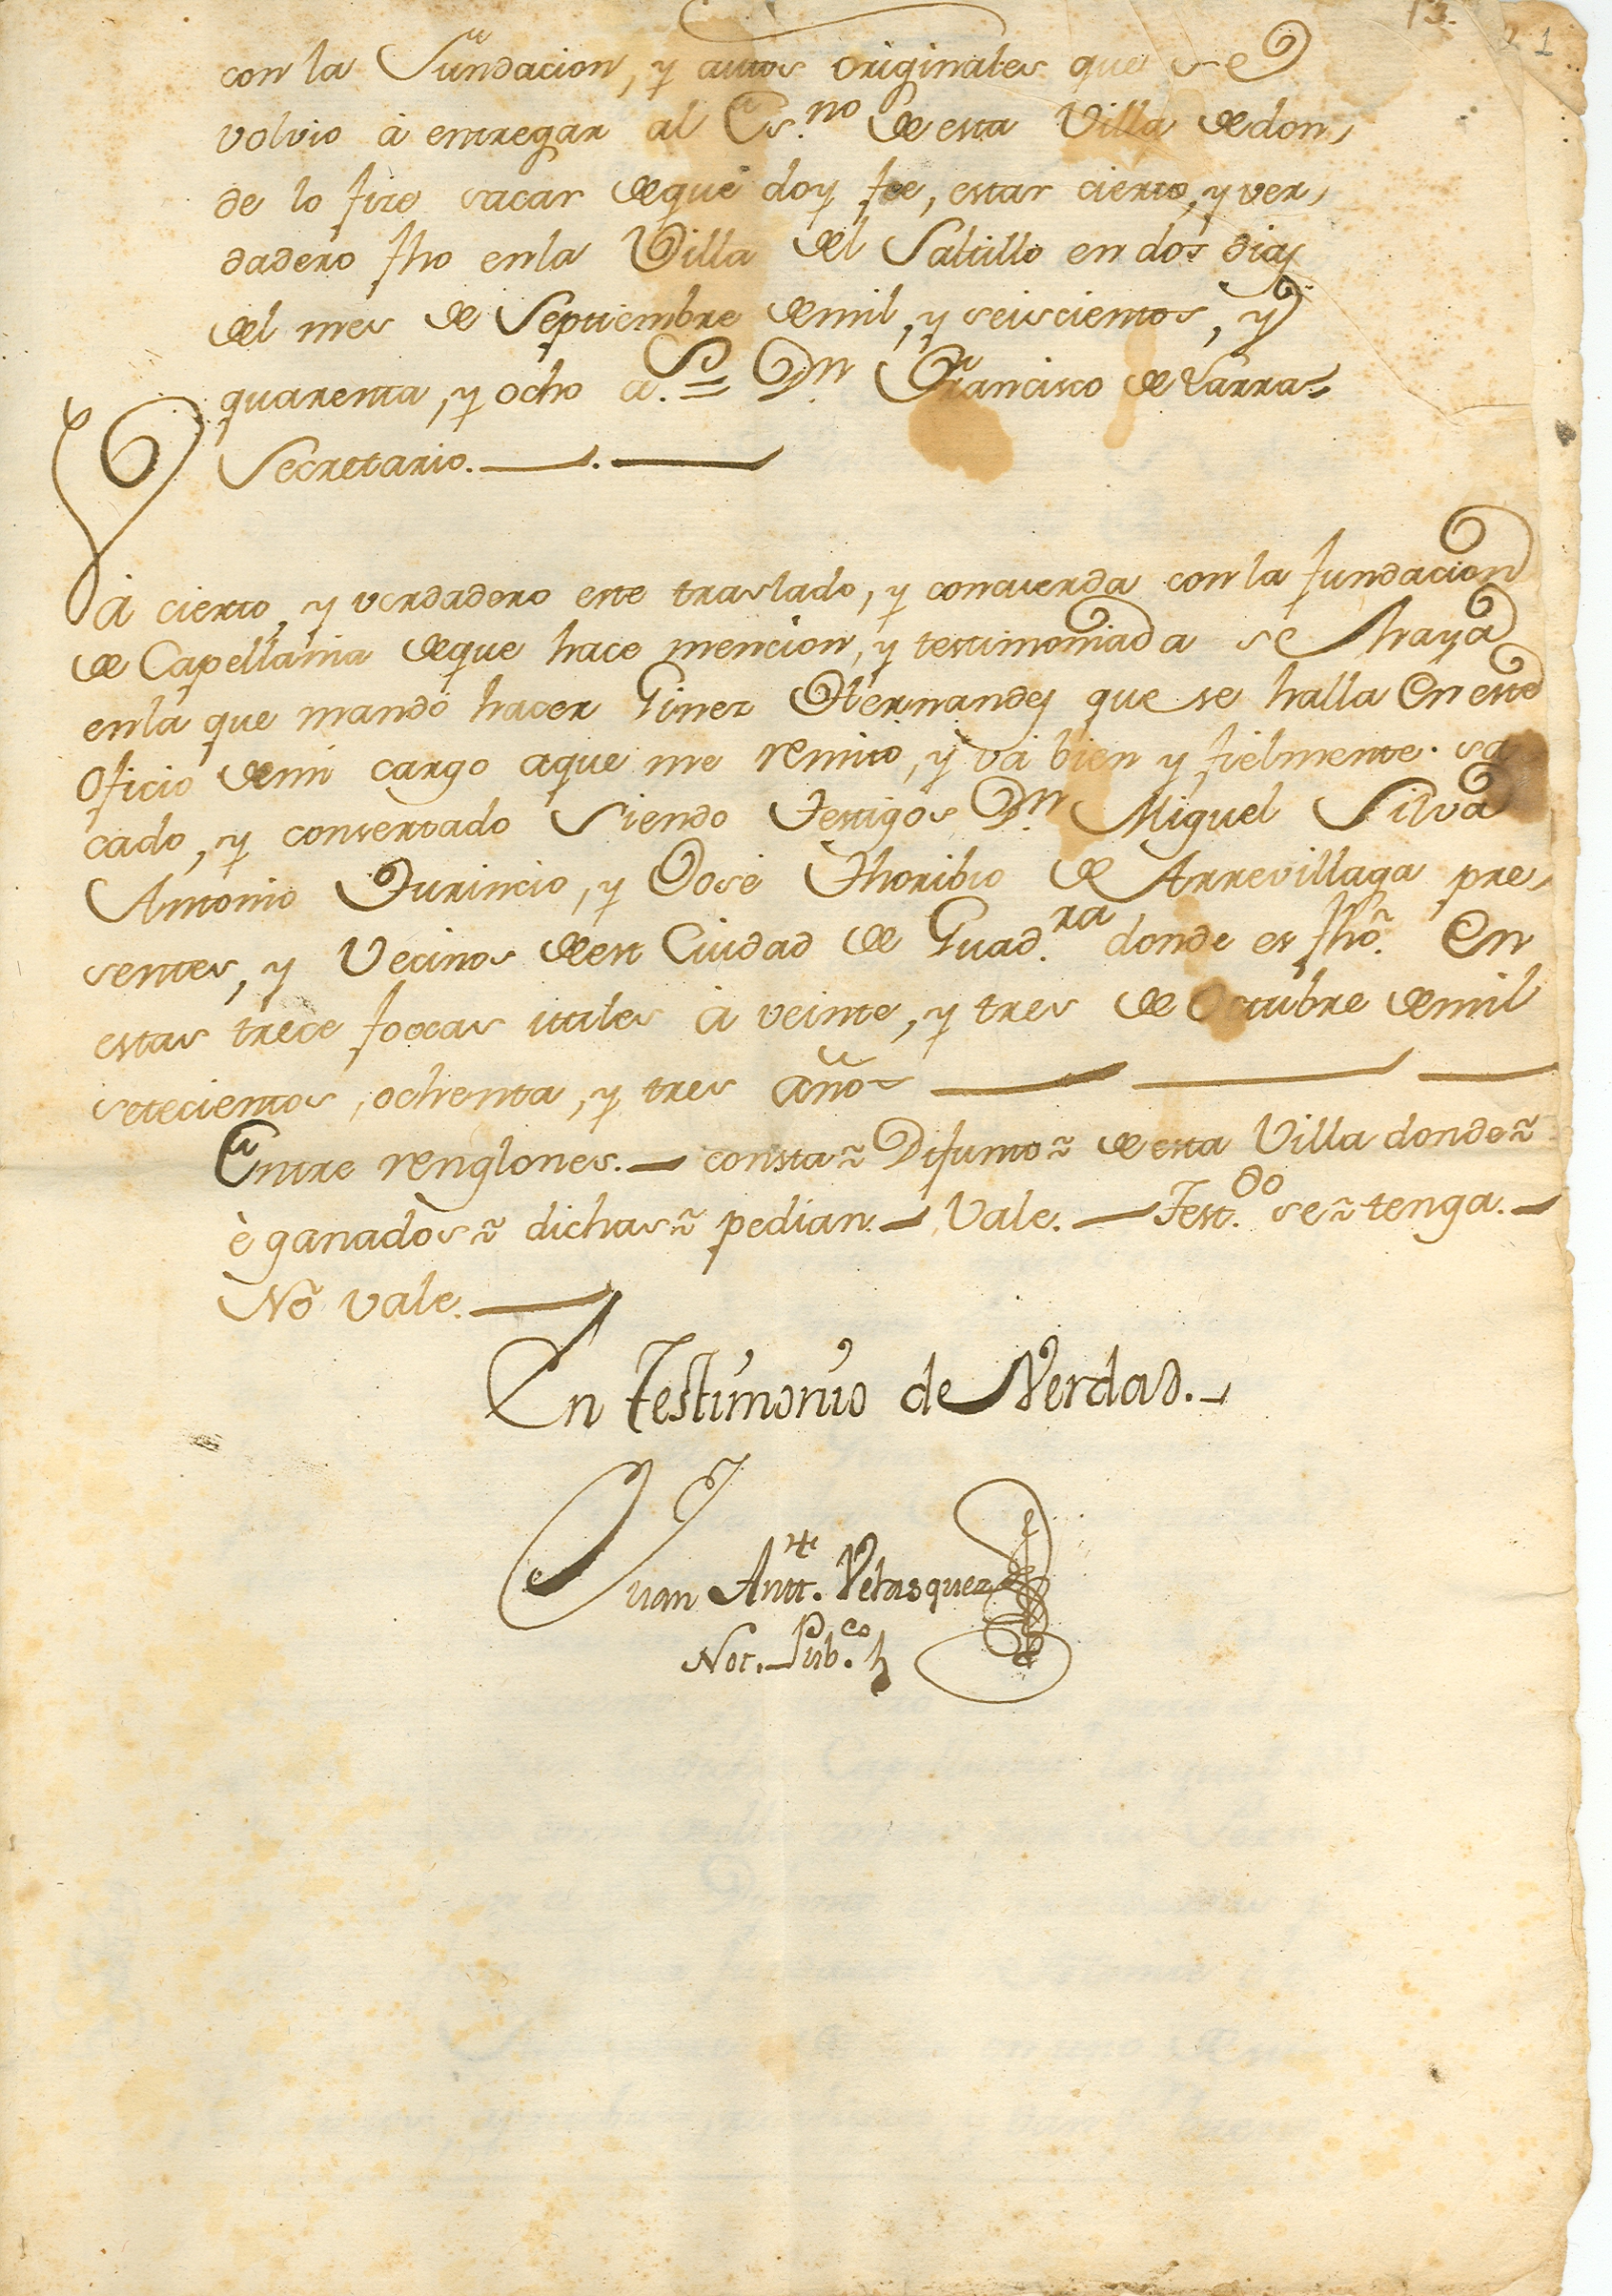 13. 21
con la Fundacion, y autos originales que se
volvio á entregar al Es.no de esta Villa de don,
de lo fize sacar de que doy fee, estar cierto, y ver,
dadero fho en la Villa del Saltillo en dos dias
del mes de Septiembre de mil, y seiscientos, y
quarenta, y ocho a.s = Dn. Francisco de Larra-
Secretario.
Vá cierto, y verdadero este traslado, y concuerda con la fundacion
de Capellania de que hace mencion, y testimoniada se haya
en la que mandó hacer Ginez Hernandez que se halla en este
Oficio de mi cargo a que me remito, y vá bien y fielmente sa
cado, y consertado siendo testigos Dn. Miguel Silva
Antonio Turincio, y José Thoribio de Arrevillaga pre,
sentes, y Vecinos de est Ciudad de Guad.ra donde es fho. En
estas trece foxas utiles á veinte, y tres de Octubre de mil
setecientos, ochenta, y tres años
Entre renglones. — consta ~ Difunto ~ de esta Villa donde ~
è ganados ~ dichas ~ pedian. — Vale. — Test.do se ~ tenga. —
No vale.
En testimonio de Verdad.
Juan Antt. Velasquez
Not. Pub.co